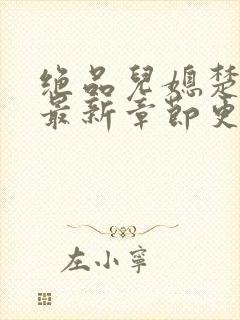 绝品儿媳楚
最新章节史
左小宁